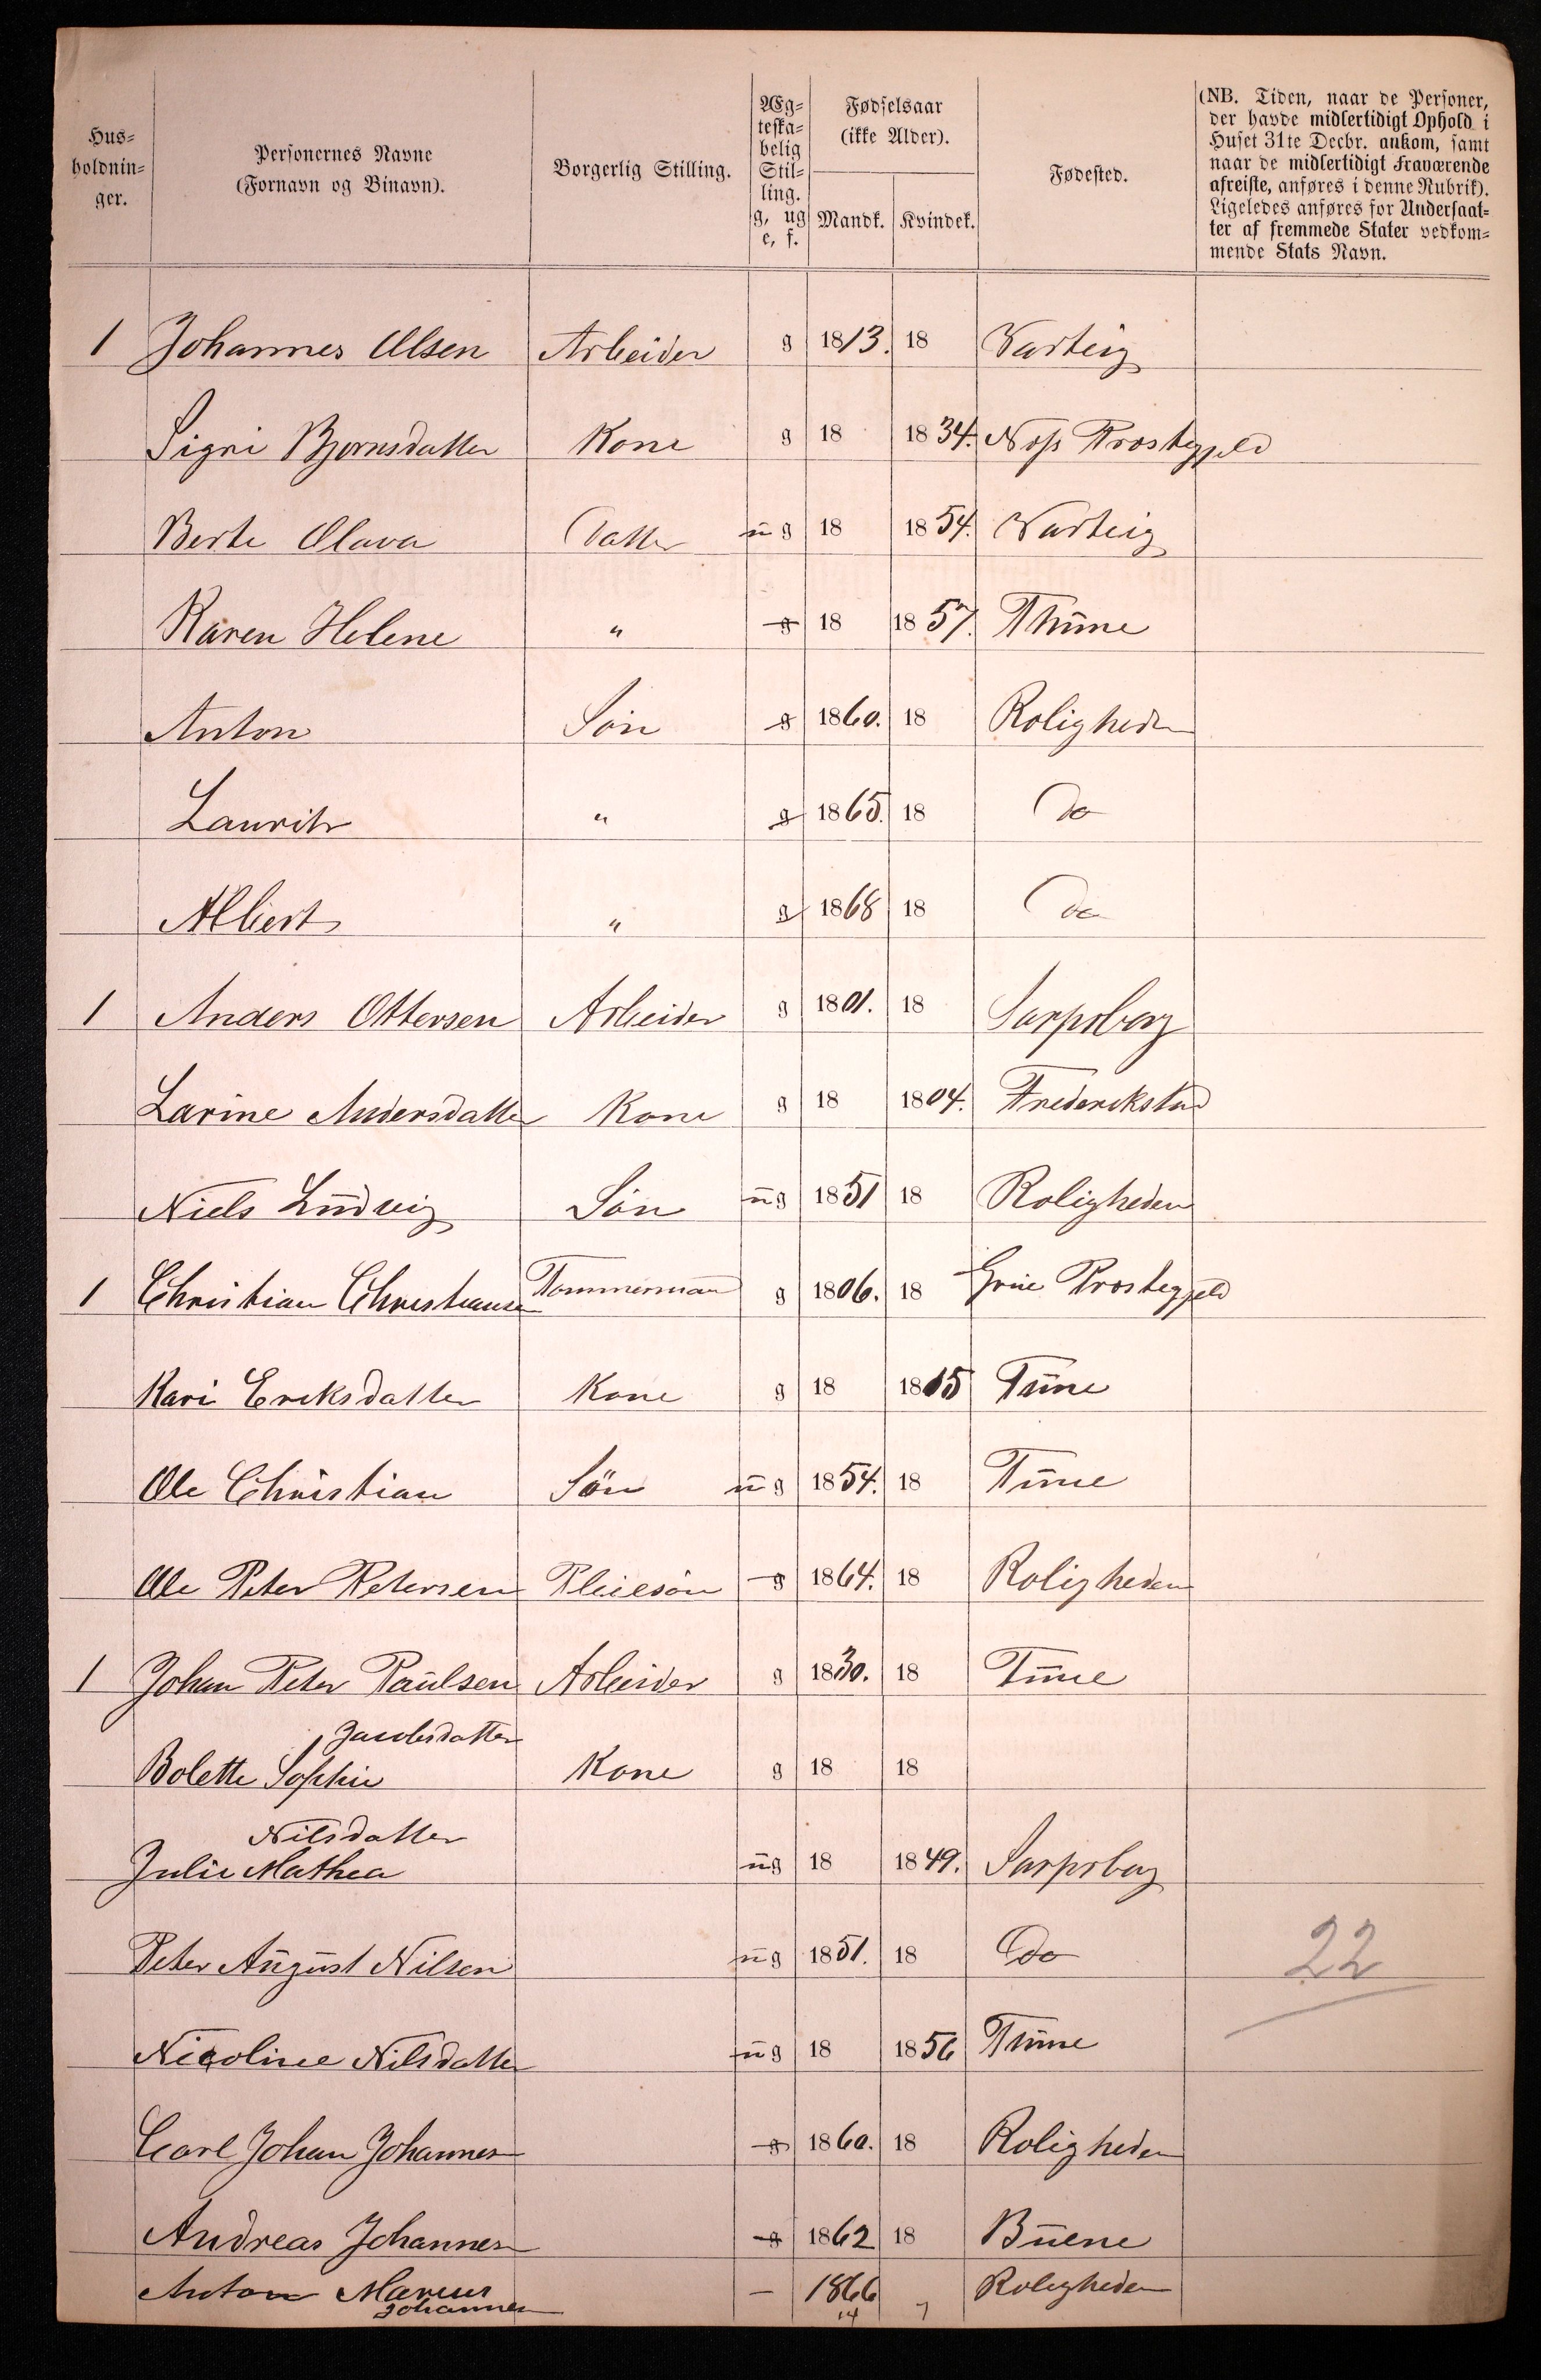 Hus-
holdnin-
ger.
Personernes Navne
(Fornavn og Binavn).
Borgerlig Stilling.
Æg-
teska-
belig
Stil-
ling.
g, ug
e, f.
Fødselsaar
(ikke Alder).
Mandk. Kvindek.
Fødested.
(NB. Tiden, naar de Personer,
der havde midlertidigt Ophold i
Huset 31te Decbr. ankom, samt
naar de midlertidigt Fraværende
afreiste, anføres i denne Rubrik).
Ligeledes anføres for Undersaat-
ter af fremmede Stater vedkom-
mende Stats Navn.
1 Johannes Olsen Arbeider g 1813. 18 Varteig
Sigri Bjornsdatter Kone g 18 1834. Næss Prostegjeld
Berte Olava Datter ug 18 1854. Varteig
Karen Helene " g 18 1857. Thune
Anton Søn g 1860. 18 Roligheden
Laurits " g 1865. 18 Do
Albert " g 1868 18 Do
1 Anders Ottersen Arbeider g 1801. 18 Sarpsborg
Larine Andersdatter Kone g 18 1804. Frederekstad
Niels Ludvig Søn ug 1851 18 Roligheden
1 Christian Christiansen Tømmerman g 1806. 18 Grue Prostegjeld
Kari Ericksdatter Kone g 18 1815 Tune
Ole Christian Sön ug 1854. 18 Tune
Ole Peter Petersen Pleiesön g 1864. 18 Roligheden
1 Johan Peter Paulsen Arbeider g 1830. 18 Tune
Jacobsdatter
Bolette Sophie Kone g 18 18
Nilsdatter
Julie Mathea ug 18 1849. Sarpsborg
Peter August Nilsen ug 1851. 18 Do 22
Nicoline Nilsdatter ug 18 1856 Tune
Carl Johan Johannes g 1860. 18 Roligheden
Andreas Johannes g 1862 18 Buene
Anton Marius – 1866 Rolegheden
Johannes 14 7